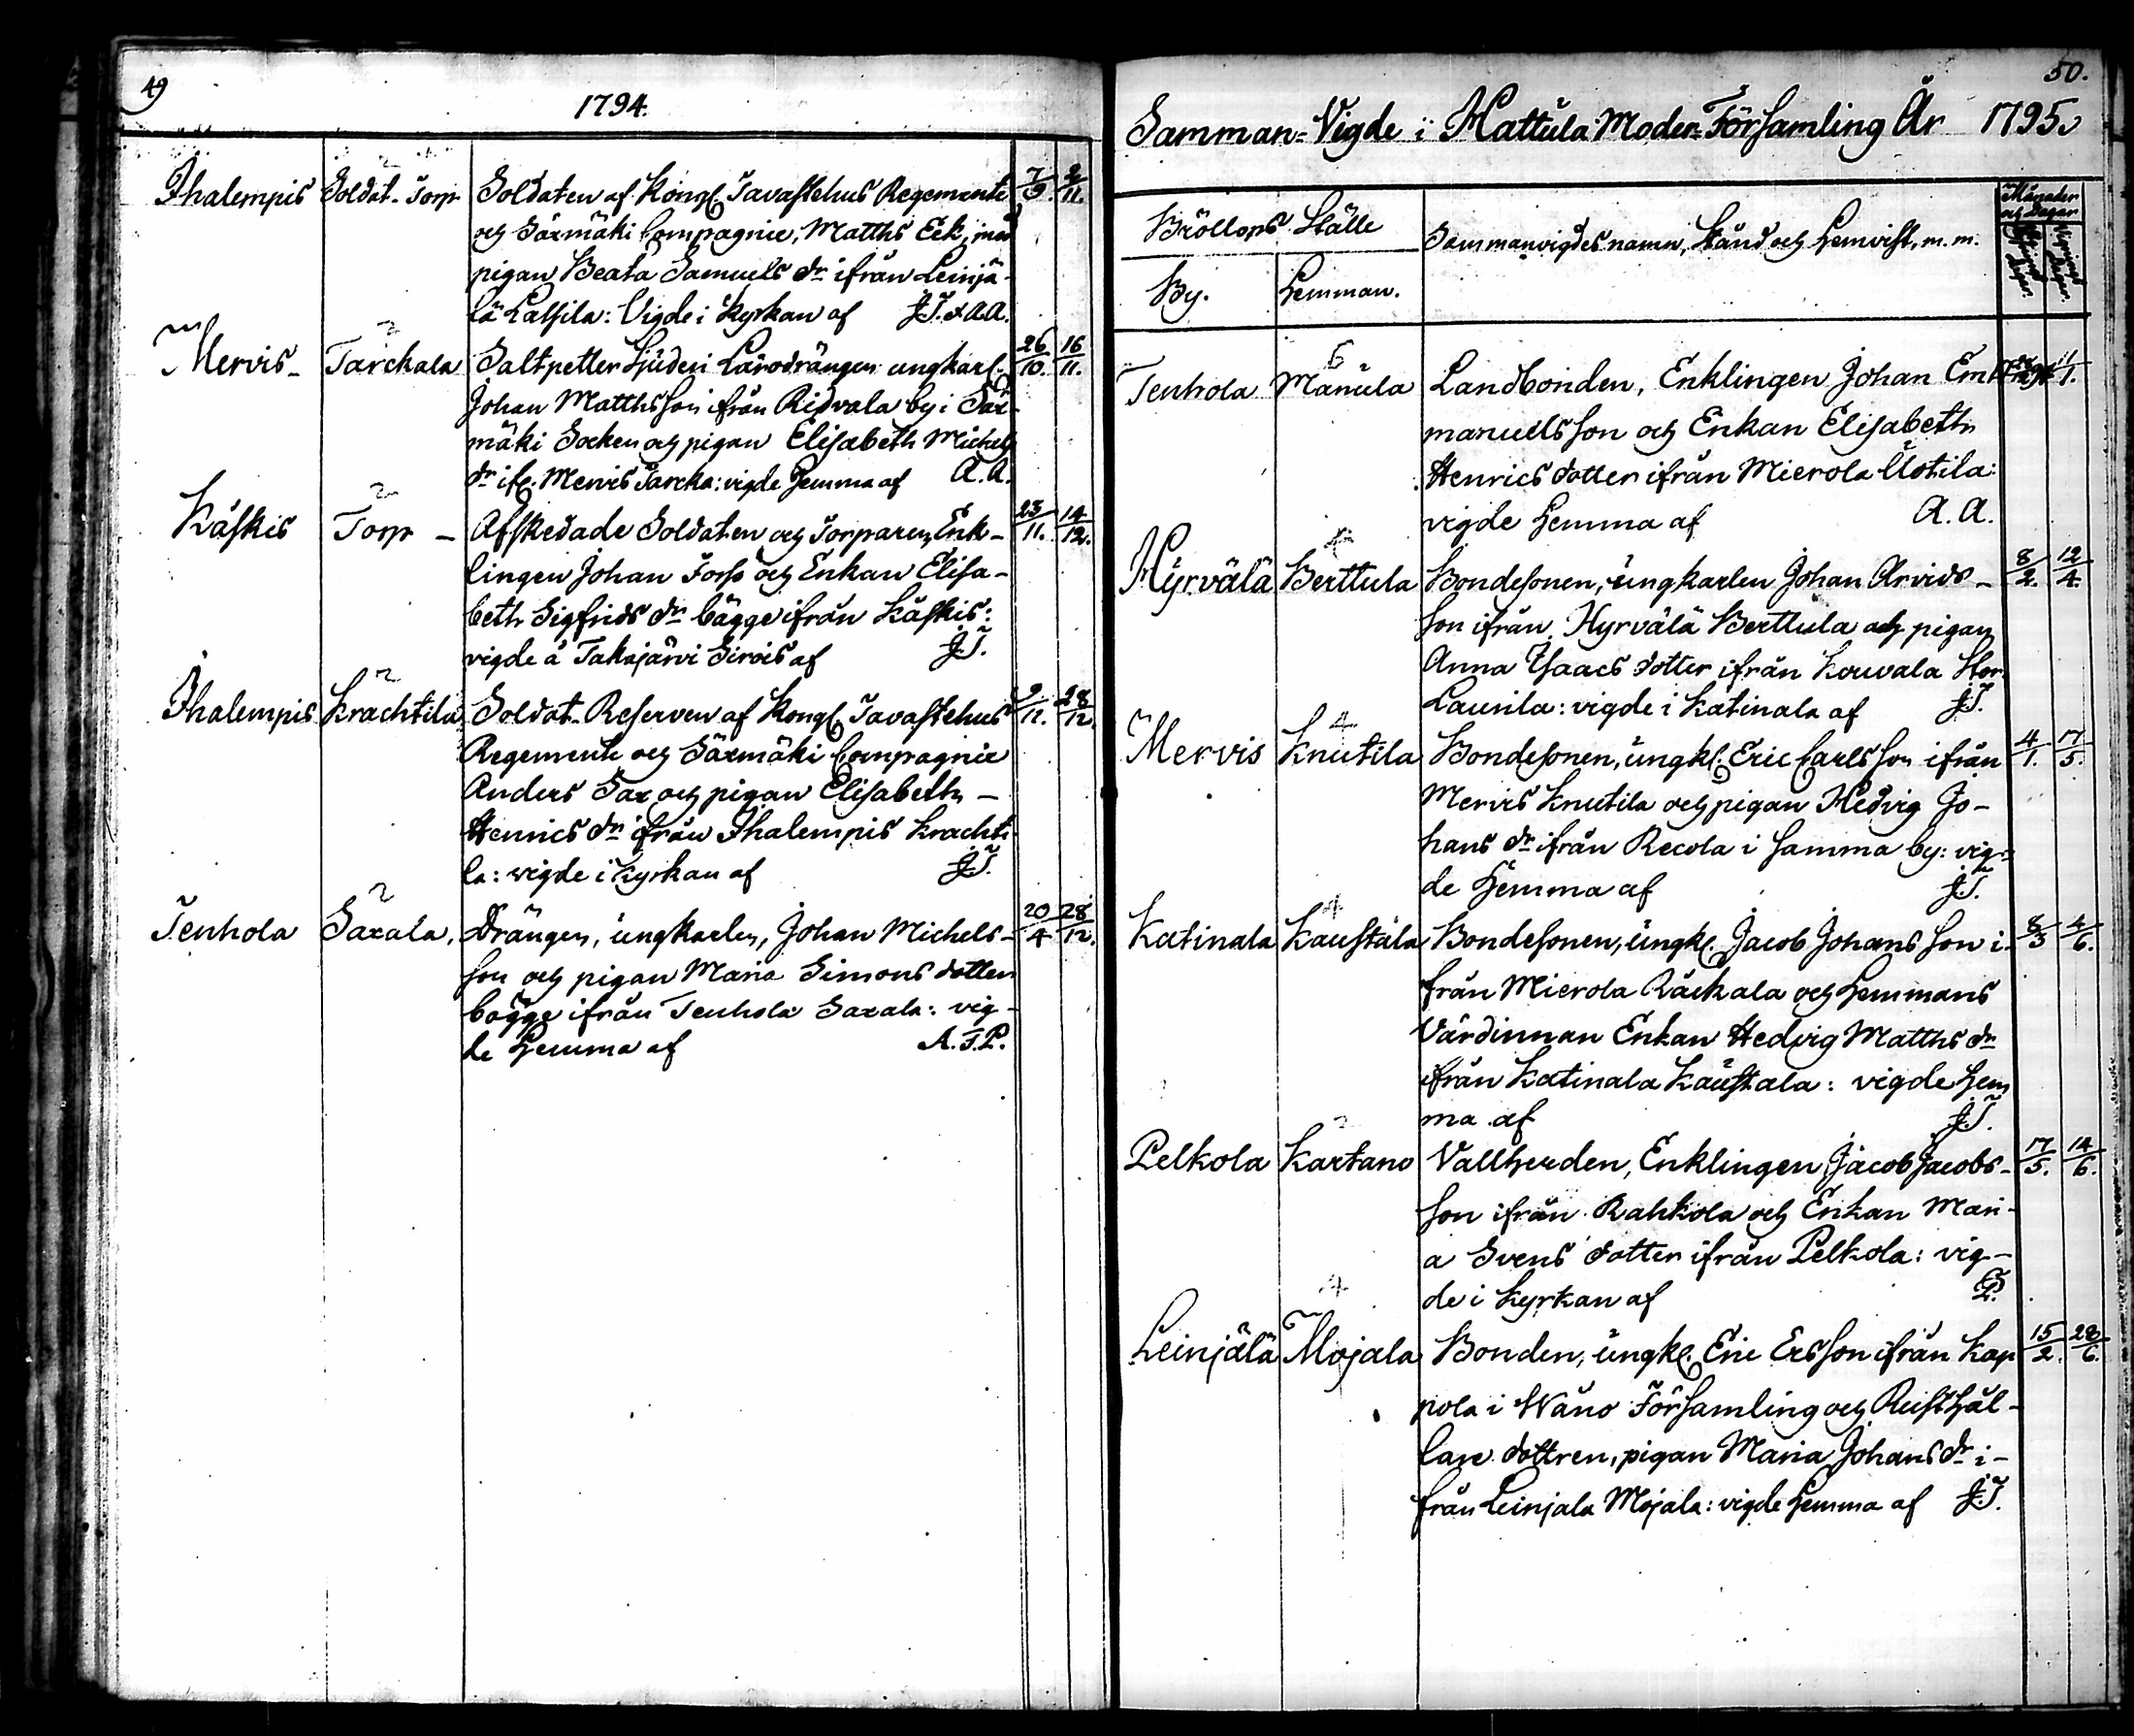 49
1794.
Ihalempis Soldat-Torp Soldaten af Kongl. Tavastehus Regemente 7/9. 2/11.
och Säxmäki Compagnie, Matths Eek, med
pigan Beata Samuels dr ifrån Leinjä-
lä Lassila: Vigde i Kyrkan af J.T. & A.A.
Mervis- Tarckala Saltpetter Sjuderi Lärodrängen ungkarl. 26/10. 16/11.
Johan Matthsson ifrån Ridvala by i Säx-
mäki Socken och pigan Elisabeth Michels
dr ifr. Mervis Tarcka: vigde hemma af A.A.
Käskis Torp - Afskedade Soldaten och Torparen, Enk- 23/11. 14/12.
lingen Johan Forss och Enkan Elisa-
beth Sigfrids dr bägge ifrån Käskis:
vigde å Takajärvi Sirois af J.T.
Ihalempis Krachtila Soldat-Reserven af Kongl. Tavastehus 9/11. 28/12.
Regemente och Säxmäki Compagnie
Anders Sax och pigan Elisabeth -
Henrics dr ifrån Ihalempis Krachti-
la: vigde i Kyrkan af J.T.
Tenhola Saxala. Drängen, ungkarlen, Johan Michels- 20/4 28/12.
son och pigan Maria Simons dotter
bägge ifrån Tenhola Saxala: vig-
de hemma af A.F.P.
50.
Samman-Vigde i Hattula Moder-Församling År 1795.
Bröllops Ställe Sammanvigdes namn, Stånd och hemvist, m. m. Månader och Dagar
By. Hemman.
Tenhola Manula Landbonden, Enklingen Johan Em- 11/1.
manuelsson och Enkan Elisabeth
Henrics dotter ifrån Mierola Uotila:
vigde hemma af A.A.
Hyrvälä Berttula Bondesonen, ungkarlen Johan Arvids- 8/2. 12/4.
son ifrån Hyrvälä Berttula och pigan
Anna Isaacs dotter ifrån Kouvala Stor
Launila: vigde i Katinala af J.T.
Mervis Knutila Bondesonen, ungkl. Eric Carlsson ifrån 4/1. 17/5.
Mervis Knutila och pigan Hedvig Jo-
hans dr ifrån Recola i samma by: vig-
de hemma af J.T.
Katinala Kaustala Bondesonen, ungkl. Jacob Johansson i- 8/3 4/6.
från Mierola Räckala och hemmans
Värdinnan Enkan Hedvig Matths dr
ifrån Katinala Kaustala: vigde hem
ma af J.T.
Pelkola Kartano Vallherden, Enklingen Jacob Jacobs- 17/5. 14/6.
son ifrån Rahkola och Enkan Mari-
a Svens dotter ifrån Pelkola: vig-
de i Kyrkan af
Leinjälä Mojala Bonden, ungkl. Eric Ersson ifrån Kap 15/2. 28/6.
pola i Wåno Församling och Rusthål-
lare dottren, pigan Maria Johans dr i-
från Leinjala Mojala: vigde hemma af J.T.